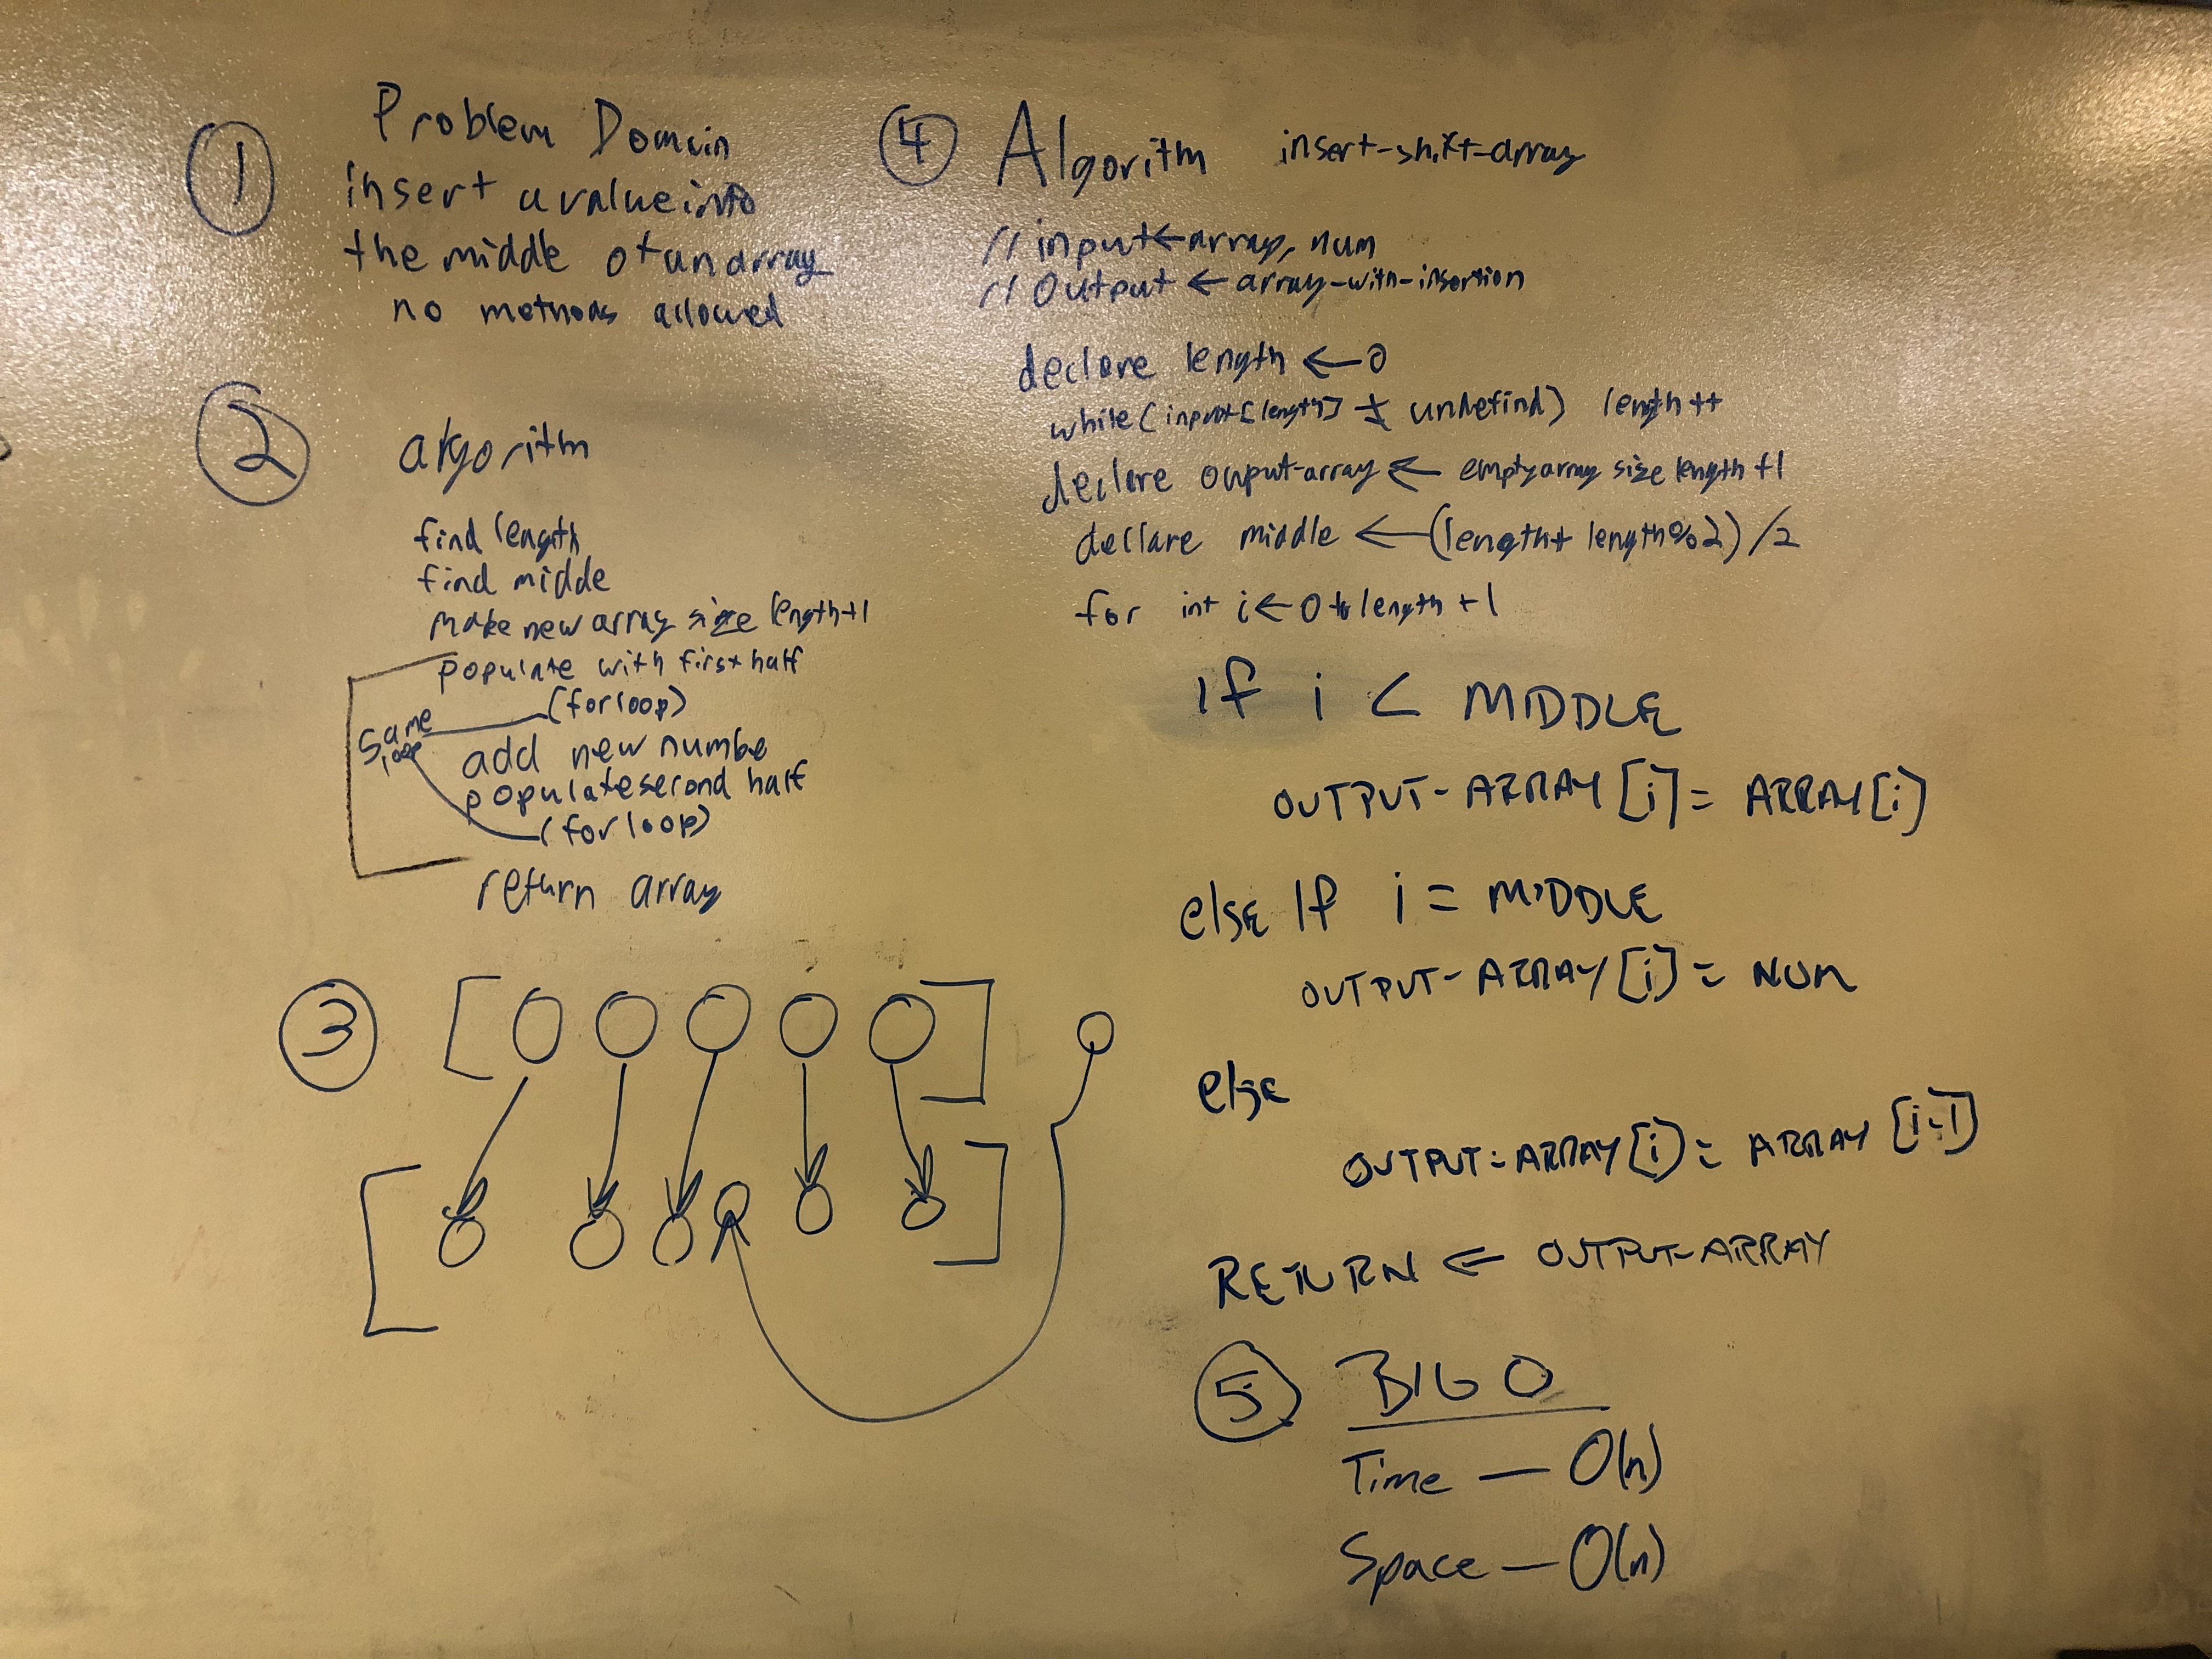 1
Problem Domain
insert a value into
the middle of an array
no methods allowed
2
algorithm
find length
find midde
make new array size length+1
populate with first half
(for loop)
same
loop
add new numbe
populate second half
(for loop)
return array
3
4
Algorithm insert-shift-array
// input ← array, num
// Output ← array-with-insertion
declare length ← 0
while (input[length] ≠ undefind) length++
declare ouput-array ← empty array size length +1
declare middle ← (length + length%2)/2
for int i ← 0 to length +1
If i < MIDDLE
OUTPUT-ARRAY[i] = ARRAY[i]
else If i = MIDDLE
OUTPUT-ARRAY[i] = NUM
else
OUTPUT-ARRAY[i] = ARRAY [i-1]
RETURN ← OUTPUT-ARRAY
5
BIG O
Time — O(n)
Space — O(n)